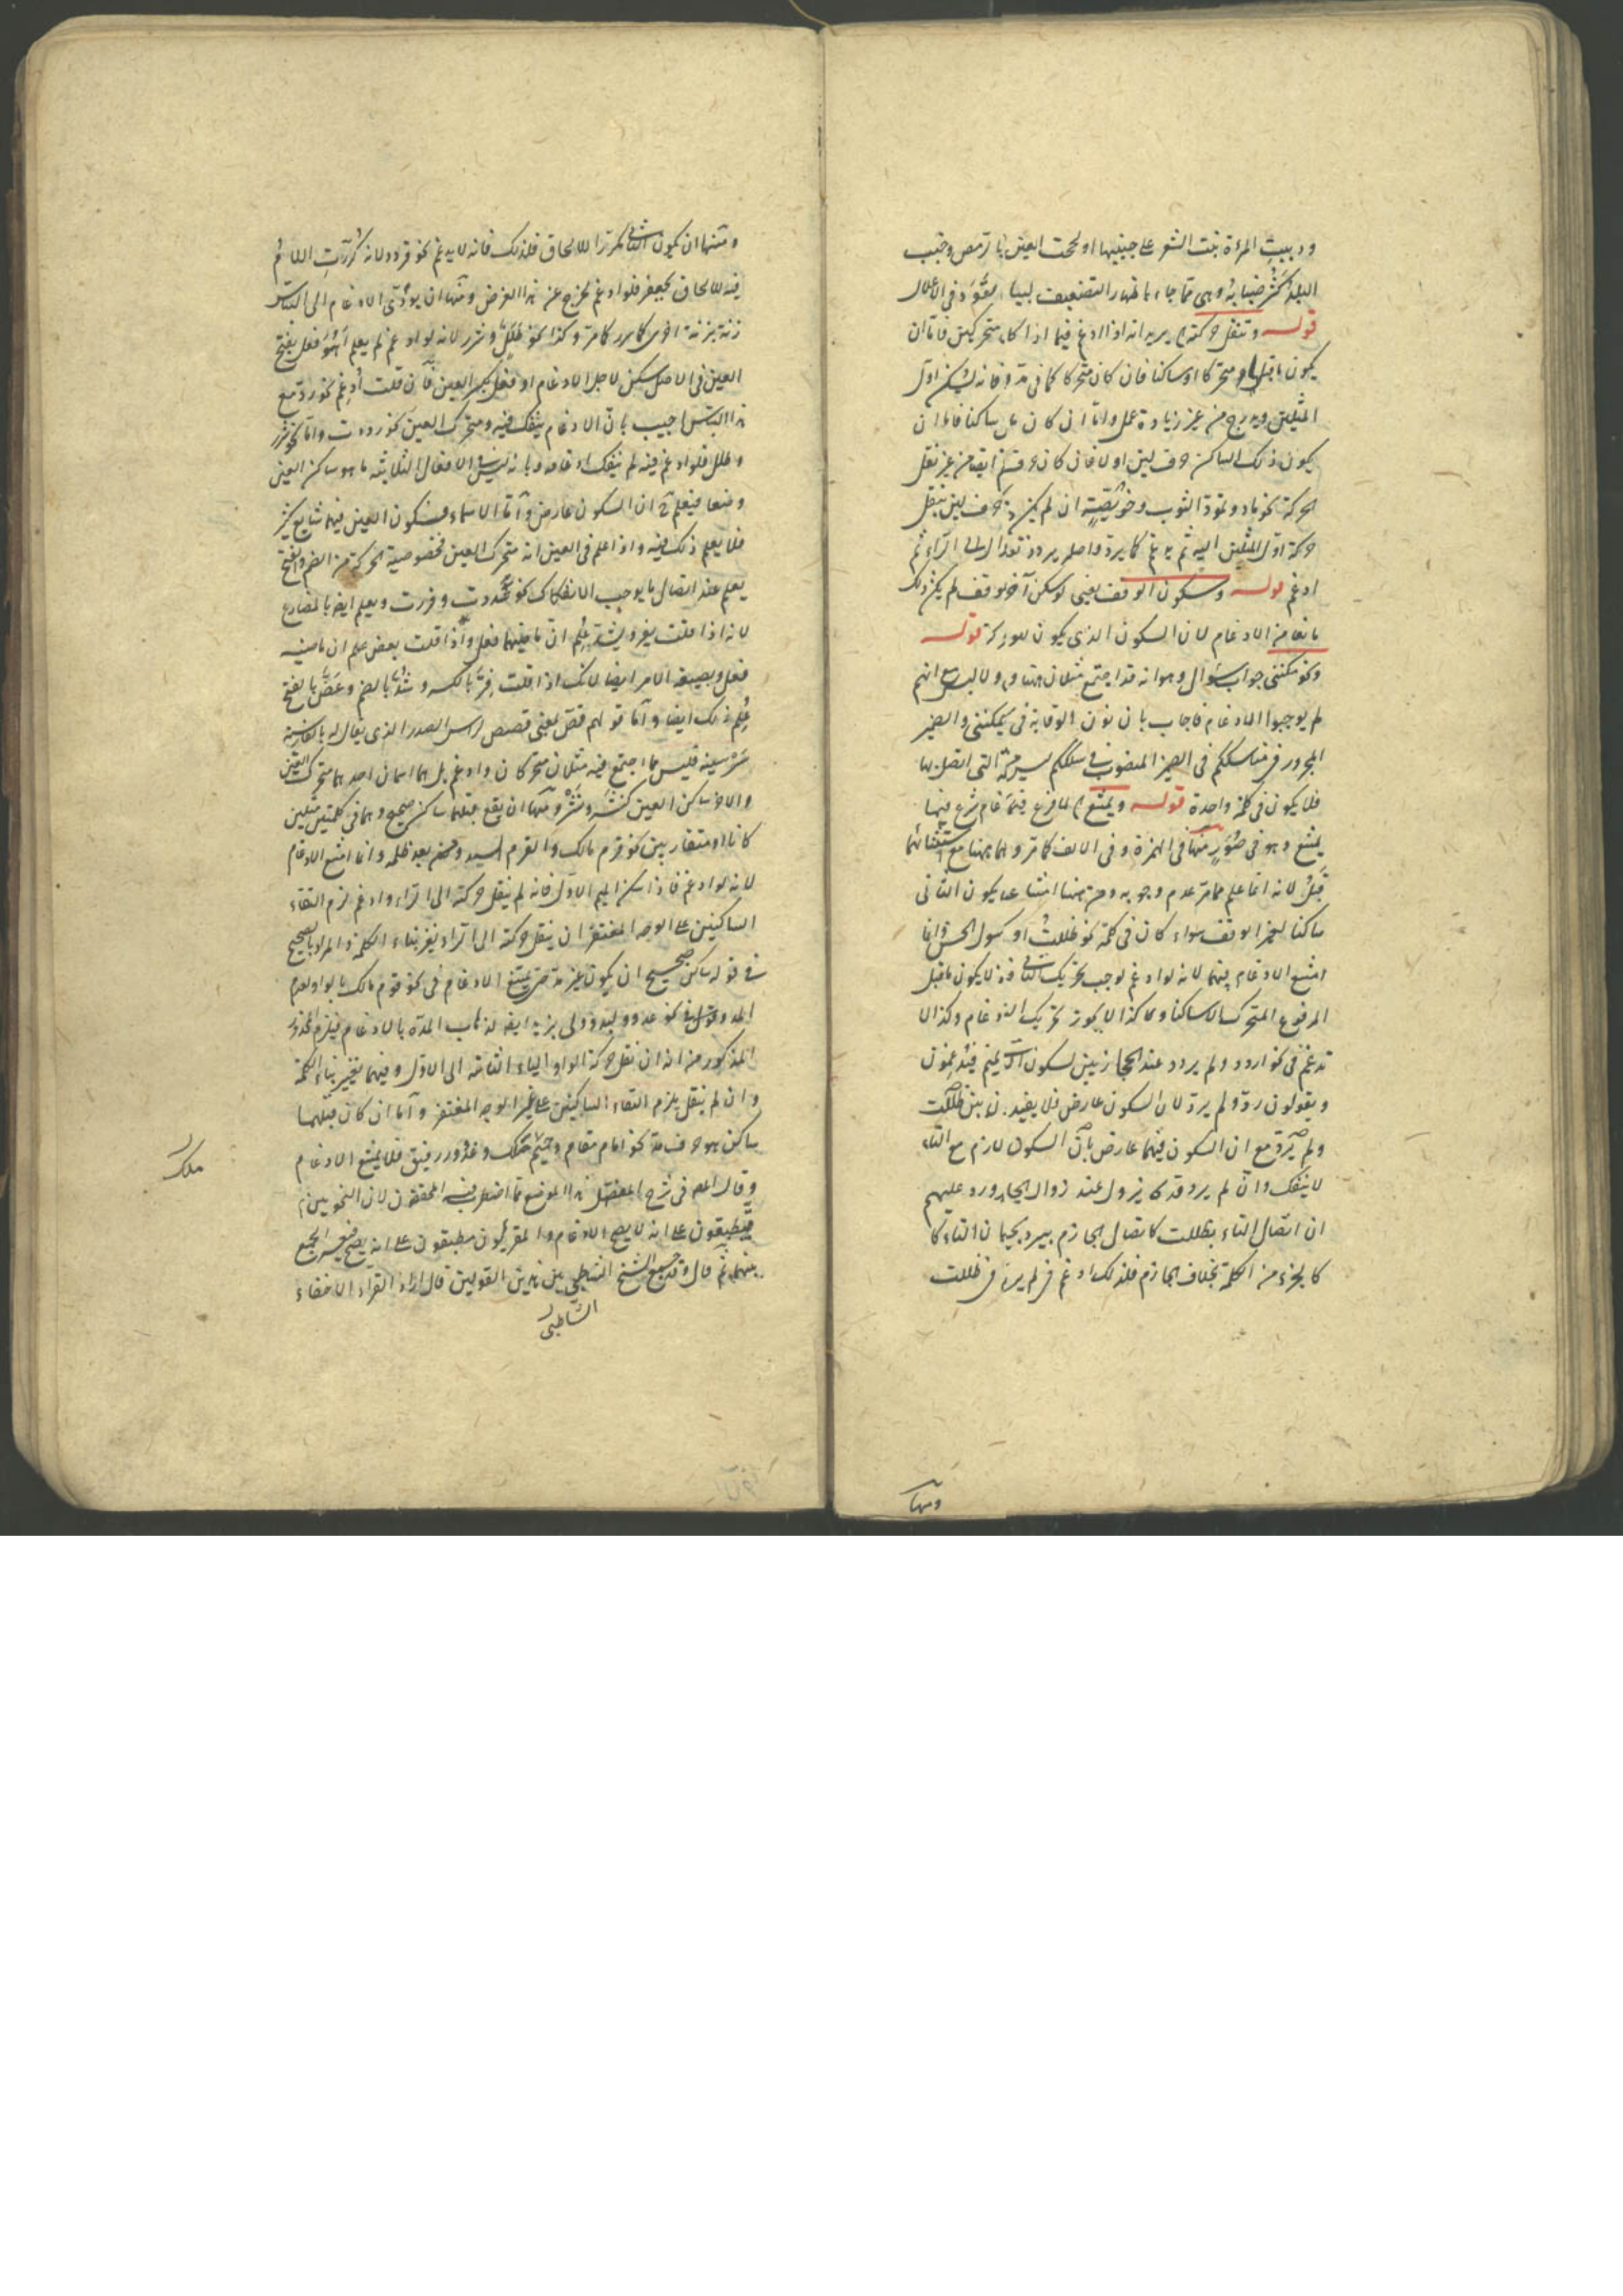 ودببت المرءة نبت الشعر على جبينها ولححت العين بالرمص وضبب
البلد كثر ضبابه وهي مما جاء باظهار التضعيف لبيان
قوله وتنقل حركته يريد انه اذا ادغم فيما اذا كانا متحركين فاما ان
يكون ما قبل متحركا او ساكنا فان كان متحركا كما في مد فانه يسكن اول
المثلين ويدرج من غير زيادة عمل واما ان كان ساكنا فاما ان
يكون ذلك الساكن حرف لين اولا فان كان من غير نقل
الحركة نحو ماد وتمود الثوب وخويصة ان لم يكن حرف لين ينقل
حركة اول المثلين اليه ثم يدغم كما يرد واصله يردد نقل الى الراء ثم
ادغم قوله وسكون الوقف يعني لو سكن آخره لوقف لم يكن ذلك
مانعا من الادغام لان السكون الذي يكون للوقف كالحركة قوله
ونحو مكنني جواب سؤال وهو انه قد اجتمع مثلان هنا ولا لبس مع انهم
لم يوجبوا الادغام فاجاب بان نون الوقاية في يمكنني والضمير
المجرور في مناسككم والضمير المنصوب في سلككم ليس من التي اتصل بها
فلا يكون في كلمة واحدة قوله ويمتنع لما فرغ شرع فيما
يمتنع وهو في صور منها في الهمزة وفي الالف كما مر وانما هما هنا مع استثنائهما
قبل لانه انما علم مما مر عدم وجوبه ومن هنا امتناعه ان يكون الثاني
ساكنا لغير الوقف سواء كان في كلمة نحو ظللت او رسول الحسن وانما
امتنع الادغام فيهما لانه لو ادغم لوجب تحريك الثاني لا يكون ما قبل
المرفوع المتحرك الا ساكنا وكذا لا يجوز تحريك الادغام وكذا لا
تدغم في نحو اردد ولم يردد عند الحجازيين لسكون الثاني تميم فيدغمون
ويقولون رد ولم يرد لان السكون عارض فلا يفيد بين ظللت
ولم يرد مع ان السكون فيهما عارض بان السكون لازم مع التاء
لا ينفك وان لم يردد قد يزول عند زوال الجازم ورد عليهم
ان اتصال التاء بظللت كاتصال الجازم بيردد يجاب ان التاء
كالجزء من الكلمة بخلاف الجازم فلذلك ادغم في لم يرد في ظللت
ومنها
ومنها ان يكون الثاني مكررا للالحاق فلذلك فانه لا يدغم نحو قردد لانه كررت اللام
فيه للالحاق بجعفر فلو ادغم لخرج عن هذا الغرض ومنها ان يؤدي الادغام الى التباس
زنة بزنة اخرى كسرر كما مر وكذا نحو طلل وشرر لانه لو ادغم لم يعلم اهو فعل بفتح
العين في الاصل سكن لاجل الادغام او فعل بسكون العين فان قلت ادغم نحو رد مع
هذا التباس اجيب بان الادغام ينفك فيه ومتحرك العين نحو رددت واما نحو شرر
وطلل فلو ادغم فيه لم ينفك ادغامه وبانه ليس في الافعال الثلاثية ما هو ساكن العين
وضعا فيعلم ان السكون عارض واما الاسماء فسكون العين فيها شايع كثير
فلا يعلم ذلك فيه واذا علم في العين انه متحرك العين فخصوصية الحركة من الضم والفتح
يعلم عند اتصال ما يوجب الانفكاك نحو شددت وفررت ويعلم ايضا بالمضارع
لانه اذا قلت يفر ويشد علم ان ماضيهما فعل واذا قلت يعض علم ان ماضيه
فعل وبصيغة الامر ايضا لانك اذا قلت فر بالكسر وشد بالضم وعض بالفتح
علم ذلك ايضا واما قولهم قص بمعنى قصص لرأس الصدر الذي يقال له بالفارسية
سر سينه فليس مما اجتمع فيه مثلان متحركان وادغم بل هما اسمان احدهما متحرك العين
والآخر ساكن العين كنشر ونشر ومنها ان يقع قبلهما ساكن صحيح وهما في كلمتين مثلين
كانا او متقاربين نحو قرم مالك والقرم السيد ومن بعد ظلمه وانما امتنع الادغام
لانه لو ادغم فاذا سكن الميم الاول فانه لم ينقل حركته الى الراء وادغم لزم التقاء
الساكنين على الوجه المغتفر ان ينقل حركته الى الراء يغير بناء الكلمة والمراد بالصحيح
في قوله ساكن صحيح ان يكون غير مدة حتى يمتنع الادغام في نحو قوم مالك بالواو لعدم
المد وقيل في نحو عدو وليد وولي يزيد ايضا لذهاب المدة بالادغام فيلزم المحذور
المذكور من انه ان نقل حركة الواو والياء الثانية الى الاول وفيهما تغيير بناء الكلمة
وان لم ينقل يلزم التقاء الساكنين على غير الوجه المغتفر واما ان كان قبلهما
ساكن هو حرف مدة نحو امام مقام وحميم ملك وغفور رفيق فلا يمتنع الادغام
ملك
وقال المص في شرح المفصل هذا الموضع مما اضطرب فيه المحققون لان النحويين
مطبقون على انه لا يصح الادغام والمقرئون مطبقون على انه يصح فيعسر الجمع
بينهما ثم قال وقد جمع الشيخ الشاطبي بين هذين القولين قال اراد القراء الاخفاء
الشاطبي